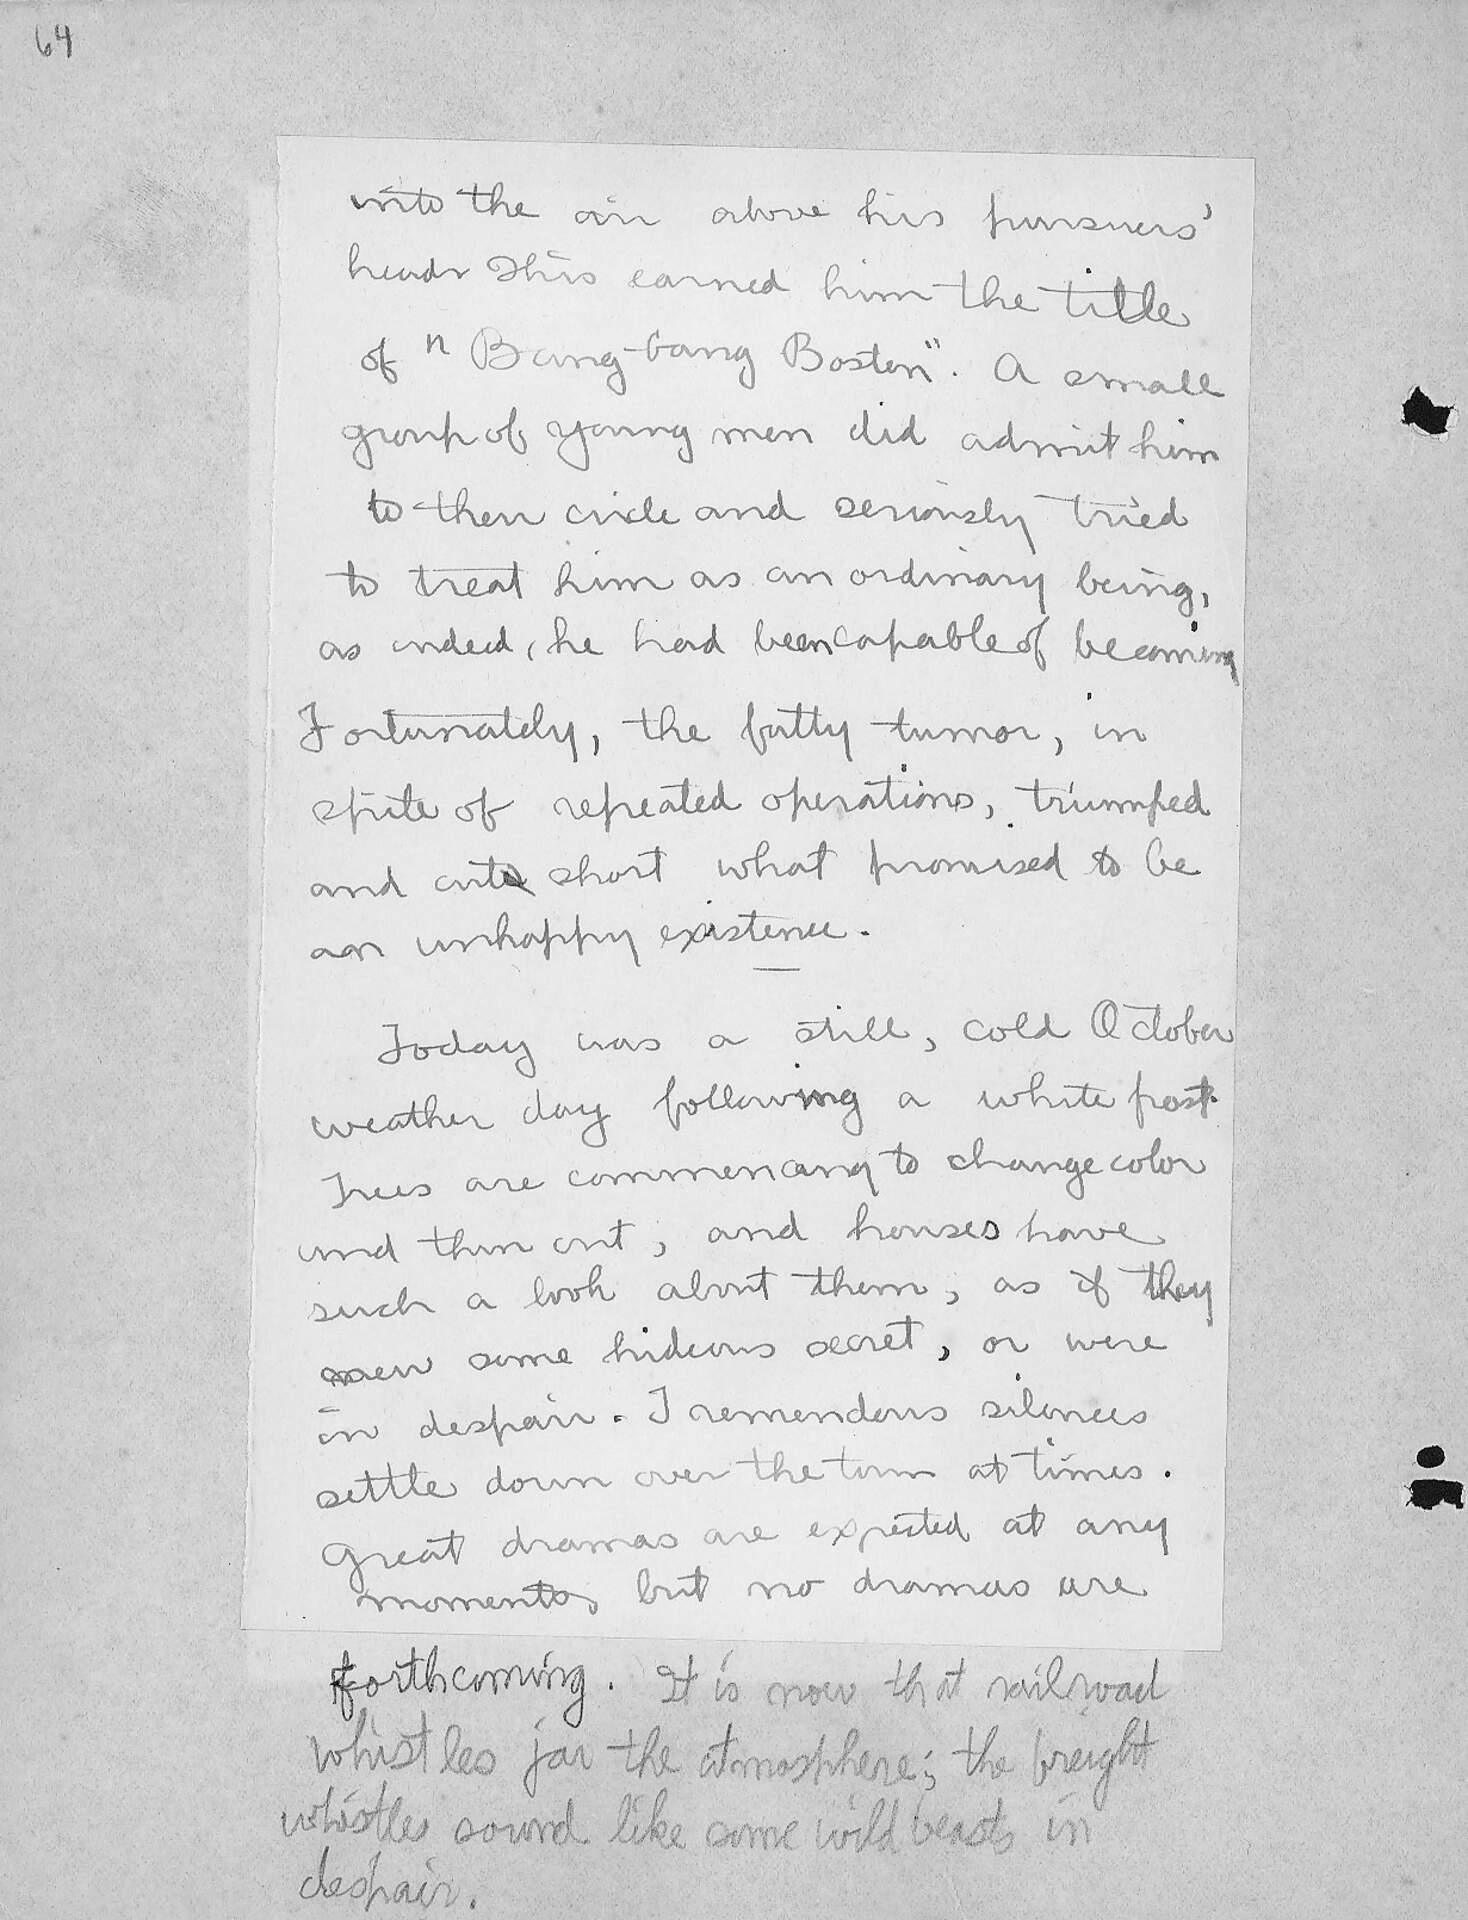 64
into the air above his pursuers'
heads This earned him the title
of "Bang-bang Boston". A small
group of young men did admit him
to their circle and seriously tried
to treat him as an ordinary being,
as indeed, he had been capable of becoming
Fortunately, the fatty tumor, in
spite of repeated operations, triumped
and cut short what promised to be
an unhappy existence.
Today was a still, cold October
weather day following a white frost.
Trees are commencing to change color
and thin out, and houses have
such a look about them, as if they
some hideous secret, or were
in despair. Tremendous silences
settle down over the town at times.
Great dramas are expected at any
moments, but no dramas are
forthcoming. It is now that railroad
whistles jar the atmosphere; the freight
whistles sound like some wild beasts in
despair.